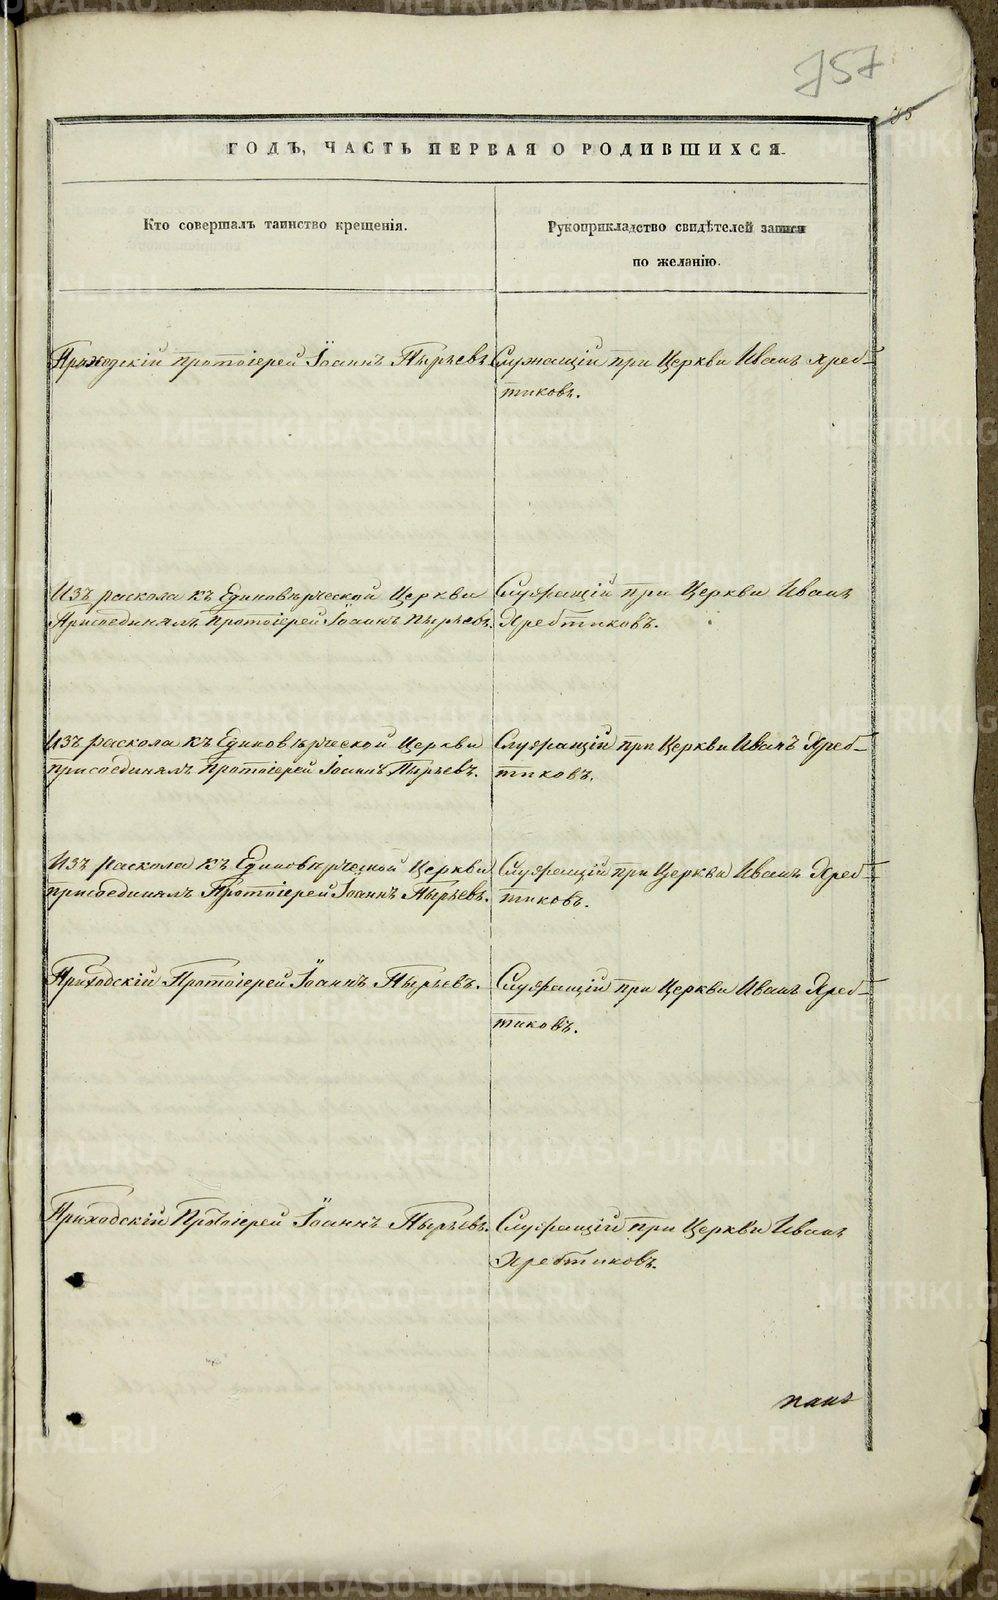 757
75
ГОДЪ, ЧАСТЬ ПЕРВАЯ О РОДИВШИХСЯ.
Кто совершалъ таинство крещенія.
Рукоприкладство свидѣтелей записи
по желанію.
Приходскій протоіерей Іоаннъ Пырьевъ.
Служащій при Церкви Иванъ Хреб-
тиковъ.
Изъ раскола къ Единовѣрческой Церкви
Присоединялъ Протоіерей Іоаннъ Пырьевъ.
Служащій при Церкви Иванъ
Хребтиковъ.
Изъ раскола къ Единовѣрческой Церкви
присоединялъ Протоіерей Іоаннъ Пырьевъ.
Служащій при Церкви Иванъ Хреб-
тиковъ.
Изъ раскола къ Единовѣрческой Церкви
присоединялъ Протоіерей Іоаннъ Пырьевъ.
Служащій при Церкви Иванъ Хреб-
тиковъ.
Приходскій Протоіерей Іоаннъ Пырьевъ.
Служащій при Церкви Иванъ Хреб-
тиковъ.
Приходскій Протоіерей Іоаннъ Пырьевъ.
Служащій при Церкви Иванъ
Хребтиковъ.
METRIKI.GASO-URAL.RU